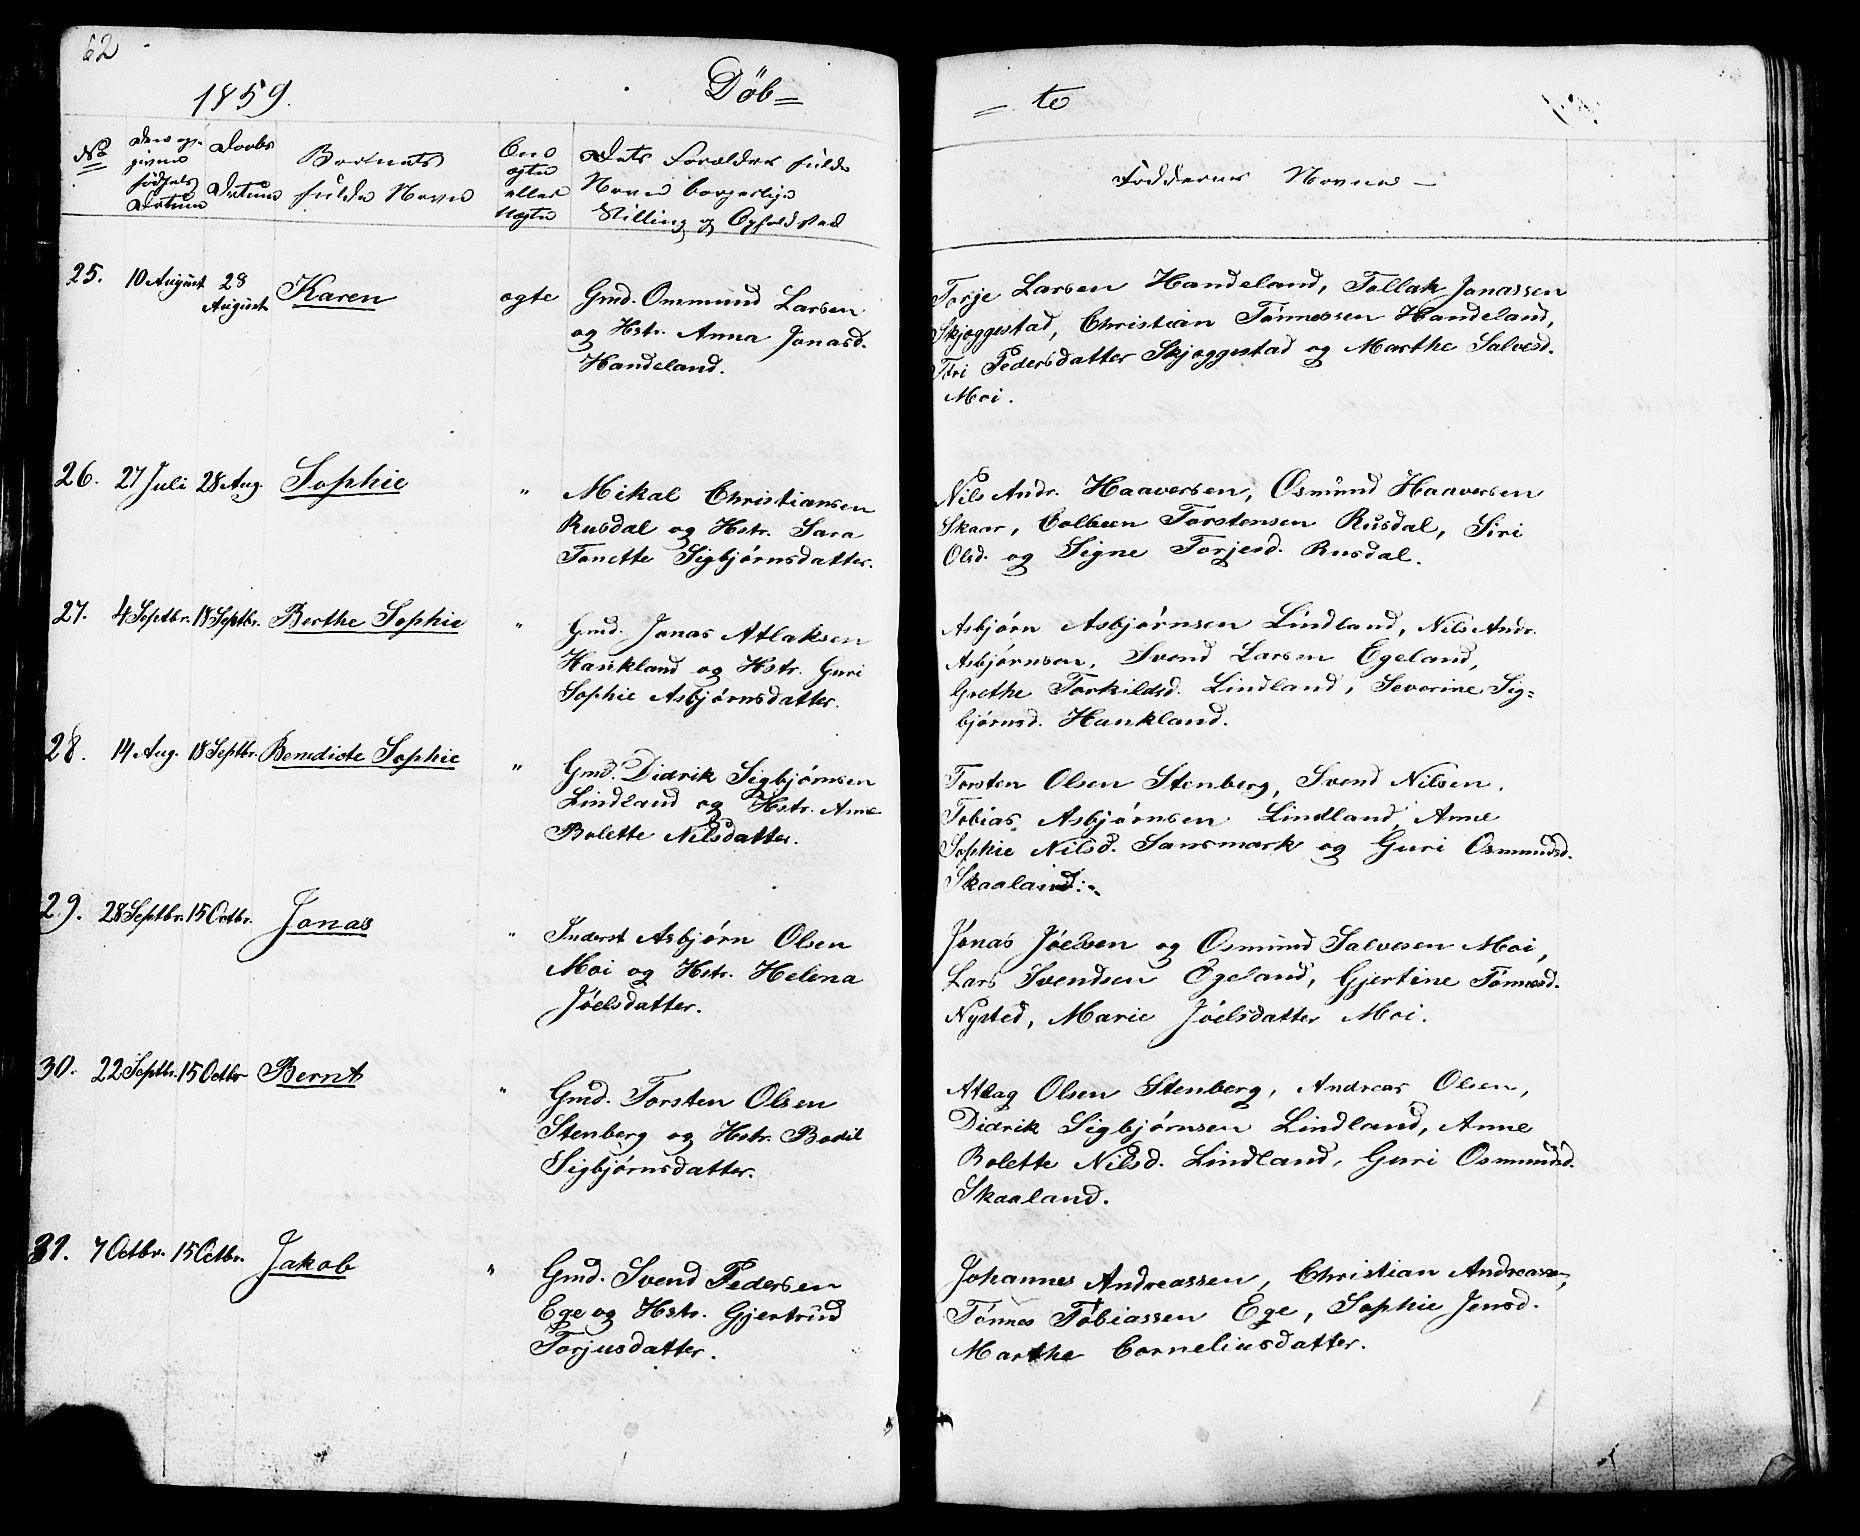 62
1859. Döb=
= te
No
Den op-
givne
födsels
Datum
Daabs
Datum
Barnets
fulde Navn
Om
ægte
eller
uægte
Dets Forældres fulde
Navne borgerlige
Stilling og Opholdsted
Faddernes Navne
25. 10 August 28 August Karen ægte Gmd. Ommund Larsen
og Hstr. Anna Jonasd.
Handeland.
Torje Larsen Handeland, Tollak Jonassen
Skjeggestad, Christian Tønnessen Handeland,
Pedersdatter Skjeggestad og Marthe Salvesd.
Moi.
26. 27 Juli 28 Aug. Sophie " Mikal Christiansen
Rusdal og Hstr. Sara
Tonette Sigbjørnsdatter.
Nils Andr. Haaversen, Osmund Haaversen
Skaar, Colbeen Torstensen Rusdal, Siri
Olsd. og Signe Torjesd. Rusdal.
27. 4 Septbr. 18 Septbr. Berthe Sophie " Gmd. Jonas Atlaksen
Haukland og Hstr. Guri
Sophie Asbjørnsdatter.
Asbjørn Asbjørnsen Lindland, Nils Andr.
Asbjørnsen, Svend Larsen Egeland,
Grethe Torkildsd. Lindland, Severine Sig=
bjørnsd. Haukland.
28. 14 Aug. 18 Septbr. Benedicte Sophie " Gmd. Didrik Sigbjørnsen
Lindland og Hstr. Anne
Bolette Nilsdatter.
Torsten Olsen Stenberg, Svend Nilsen,
Tobias Asbjørnsen Lindland, Anne
Sophie Nilsd. Sansmark og Guri Osmundsd.
Skaaland.
29. 28 Septbr. 15 Octbr. Jonas " Inderst Asbjørn Olsen
Moi og Hstr. Helena
Jöelsdatter.
Jonas Jöelsen og Osmund Salvesen Moi,
Lars Svendsen Egeland, Gjertine Tønnesd.
Nysted, Marie Jöelsdatter Moi.
30. 22 Septbr. 15 Octbr Bernt " Gmd. Torsten Olsen
Stenberg og Hstr. Bodil
Sigbjørnsdatter.
Atlag Olsen Stenberg, Andreas Olsen,
Didrik Sigbjørnsen Lindland, Anne
Bolette Nilsd. Lindland, Guri Osmundsd.
Skaaland.
31. 7 Octbr. 15 Octbr. Jakob " Gmd. Svend Pedersen
Ege og Hstr. Gjertrud
Torjusdatter.
Johannes Andreassen, Christian Andreassen,
Tønnes Tobiassen Ege, Sophie Jensd.
Marthe Corneliusdatter.